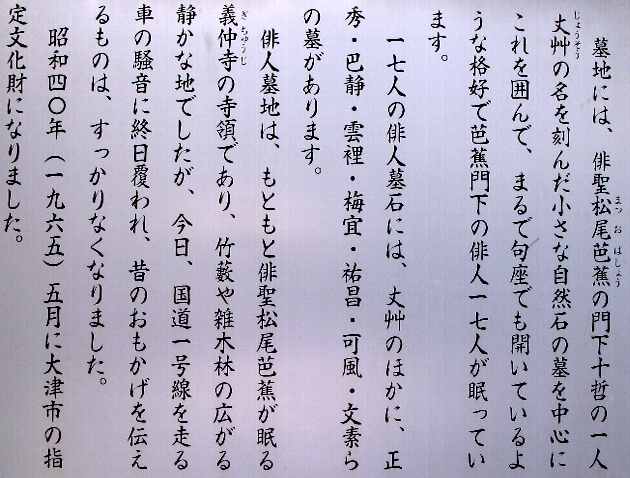 墓地には、俳聖松尾芭蕉の門下十哲の一人
丈艸の名を刻んだ小さな自然石の墓を中心に
これを囲んで、まるで句座でも開いているよ
うな格好で芭蕉門下の俳人一七人が眠ってい
ます。
一七人の俳人墓石には、丈艸のほかに、正
秀・巴静・雲裡・梅宜・祐昌・可風・文素ら
の墓があります。
俳人墓地は、もともと俳聖松尾芭蕉が眠る
義仲寺の寺領であり、竹藪や雑木林の広がる
静かな地でしたが、今日、国道一号線を走る
車の騒音に終日覆われ、昔のおもかげを伝え
るものは、すっかりなくなりました。
昭和四〇年（一九六五）五月に大津市の指
定文化財になりました。
まつおばしょう
じょうそう
ぎちゅうじ